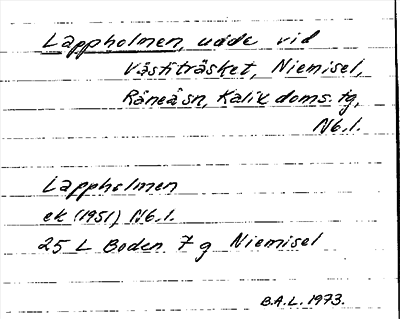 Lappholmen, udde vid
Västiträsket, Niemisel,
Råneå sn, Kalix doms. tg,
Nb.l.
Lappholmen
ek (1951) Nb.l.
25 L Boden 7 g Niemisel
B.A.L. 1973.